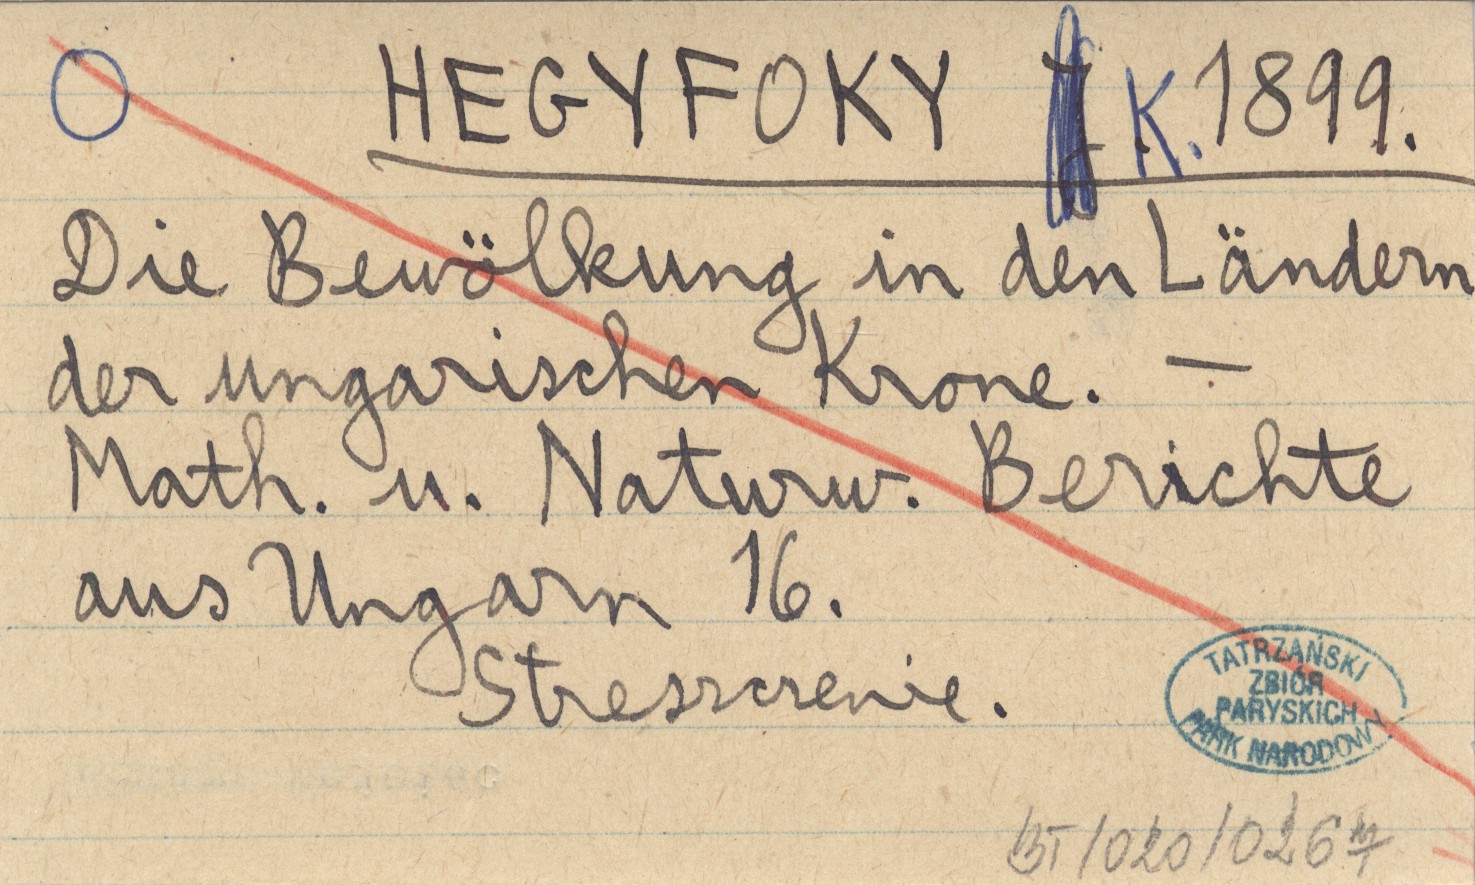 HEGYFOKY K. 1899.
Die Bewölkung in den Ländern
der ungarischen Krone. —
Math. u. Naturw. Berichte
aus Ungarn 16.
Streszczenie.
TATRZAŃSKI
ZBIÓR
PARYSKICH
PARK NARODOWY
BT/020/026